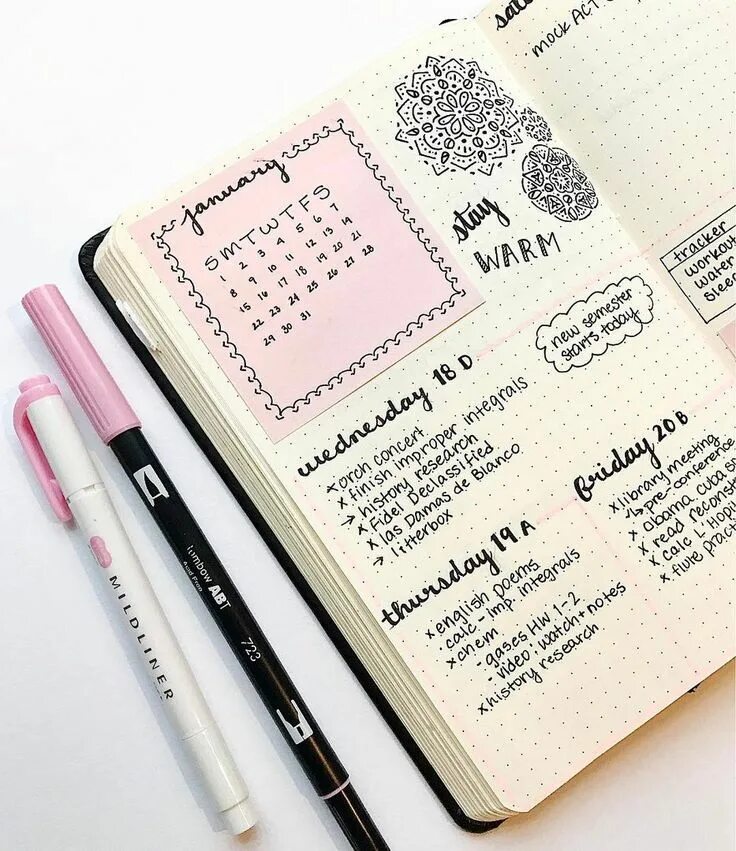 january
S M T W T F S
1 2 3 4 5 6 7
8 9 10 11 12 13 14
15 16 17 18 19 20 21
22 23 24 25 26 27 28
29 30 31
stay
WARM
new semester
starts today
wednesday 18 D
x orch concert
x finish improper integrals
→ history research
x Fidel Declassified
x las Damas de Blanco
→ litterbox
thursday 19 A
x english poems
· calc - imp. integrals
x chem
- gases HW 1-2
- video: watch + notes
x history research
friday 20 B
x library meeting
↳ pre-conference
x obama cuba
x read
x calc
x flute
mock ACT
tracker
workou
water
sleep
MILDLINER
Tombow ABT
Acid Free
723